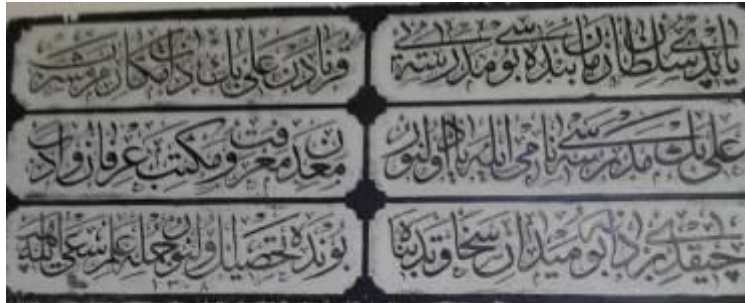 یاپدی سلطان زمان بنده سی بو مدرسه یی
قرنادن علی بك ذات مكارم مشرب
علی بك مدرسه سی نامی ایله یاد اولنور
معدن معرفت و مكتب عرفان و ادب
چیقدی بر دانه بو میدان سخاوتده
بونده تحصیل اولنور جمله علم سعی ایله
١٣٠٨